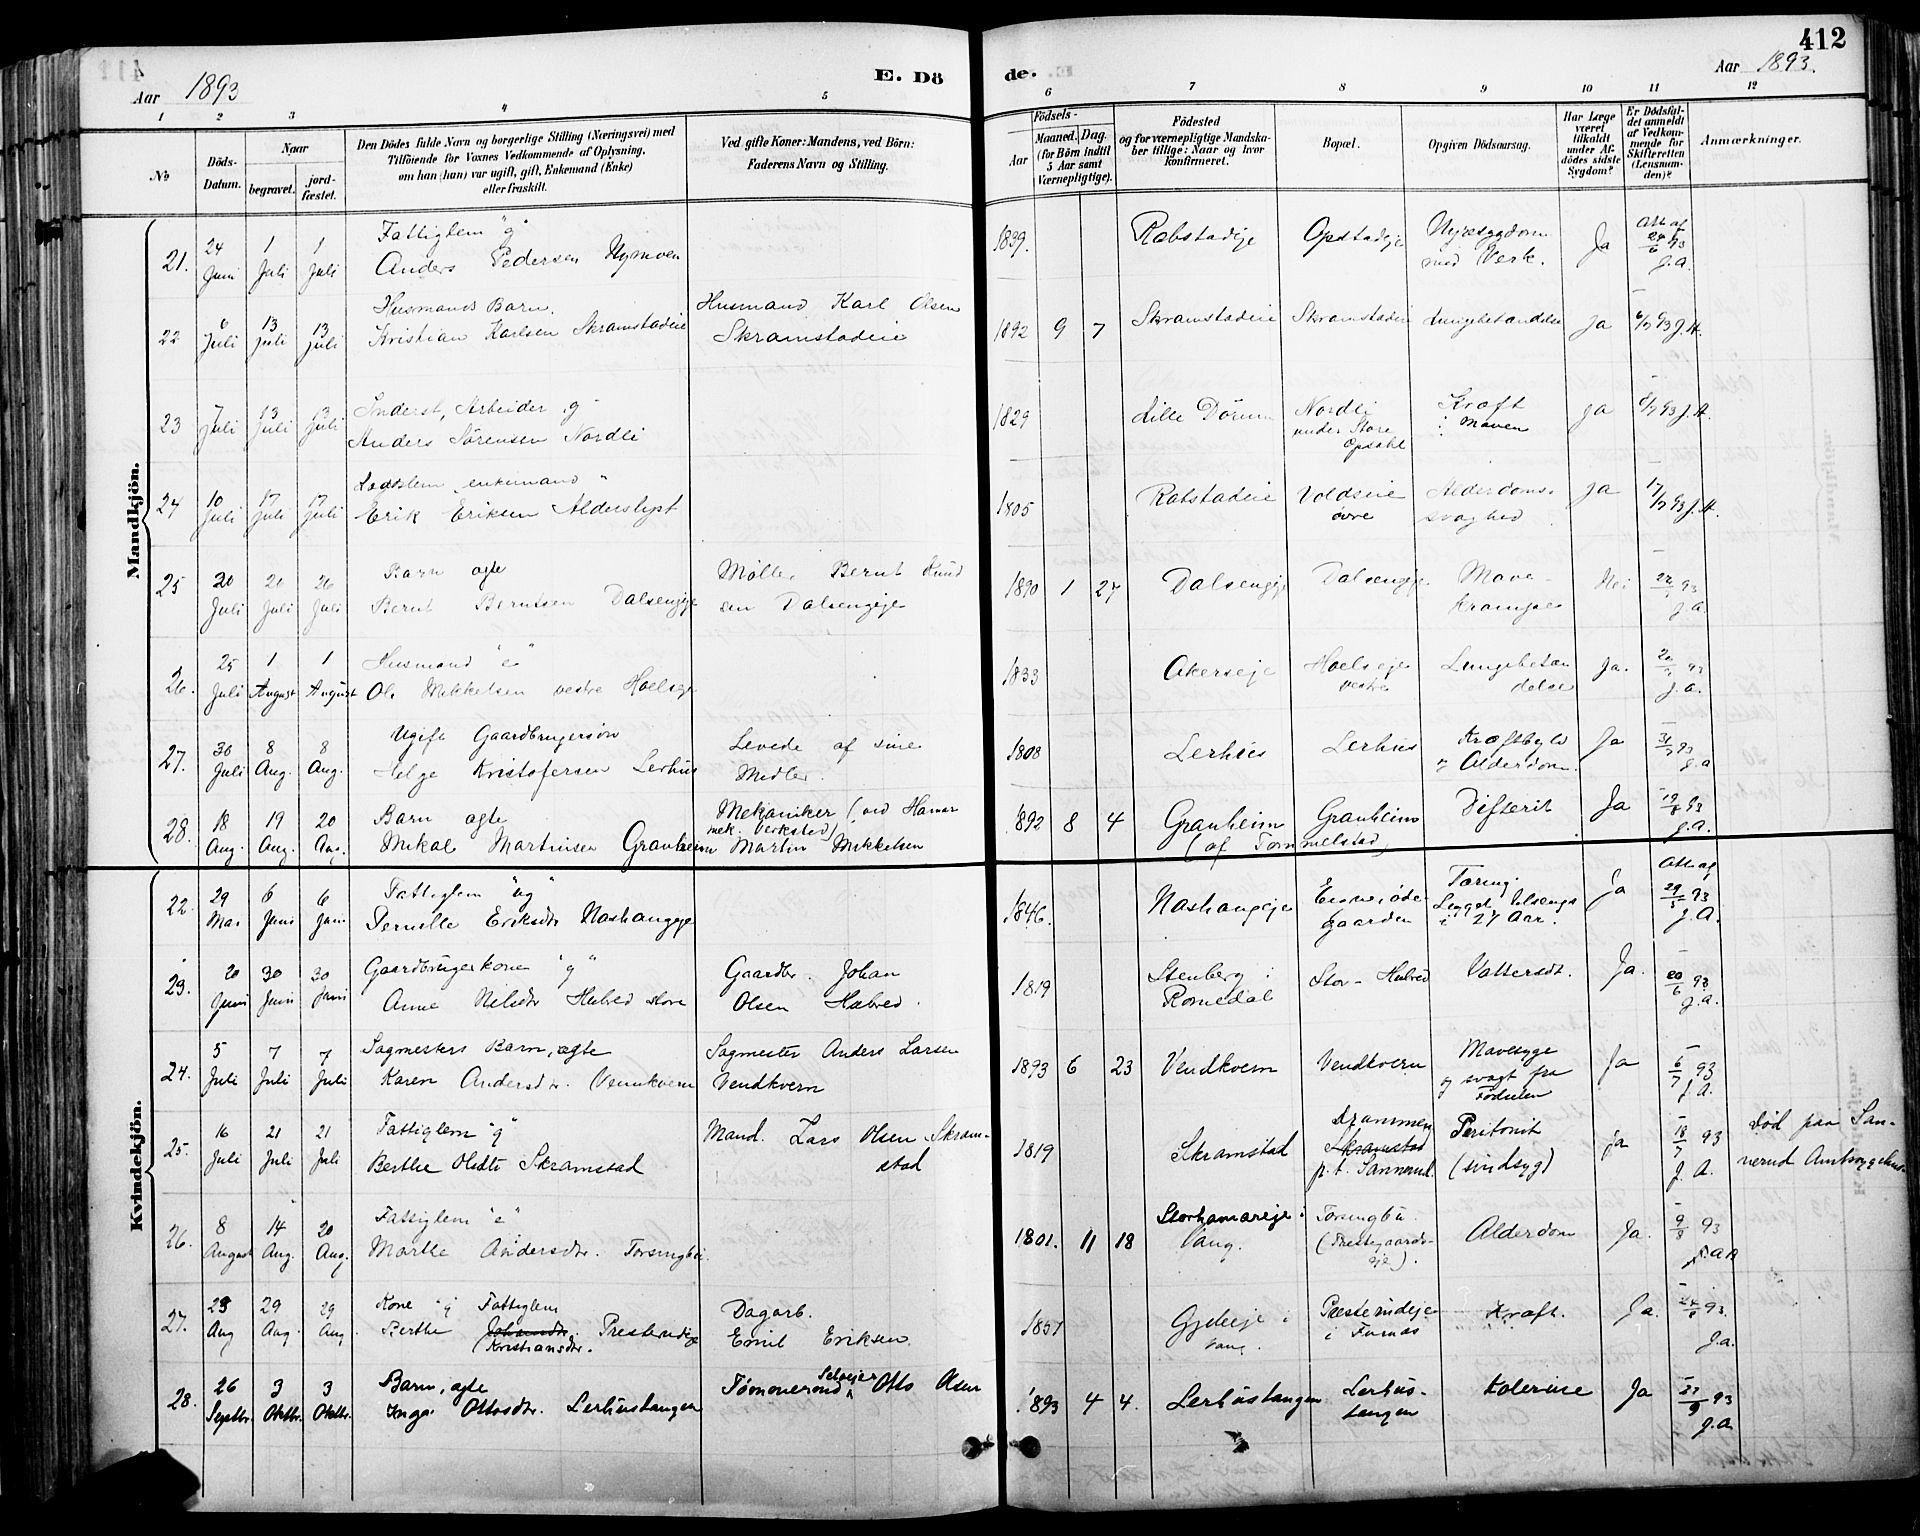 412
Aar 1893
E. Dö
de.
Aar 1893.
1 2 3 4 5 6 7 8 9 10 11 12
No
Döds-Datum.
Naar
begravet.
jord-fæstet.
Den Dödes fulde Navn og borgerlige Stilling (Næringsvei) med
Tilföiende for Voxnes Vedkommende af Oplysning,
om han (hun) var ugift, gift, Enkemand (Enke)
eller fraskilt.
Ved gifte Koner: Mandens, ved Börn:
Faderens Navn og Stilling.
Födsels-
Aar
Maaned. Dag.
(for Börn indtil
5 Aar samt
Værnepligtige).
Födested
og for værnepligtige Mandska-
ber tillige: Naar og hvor
konfirmeret.
Bopæl.
Opgiven Dödsaarsag.
Har Læge
været
tilkaldt
under Af-
dödes sidste
Sygdom?
Er Dödsfal-
det anmeldt
af Vedkom-
mende for
Skifteretten
(Lensman-
den)?
Anmærkninger.
Mandkjön.
24 1 1 Fattiglem "g"
21. Juni Juli Juli Anders Pedersen 1839. Opstadeje Nyresygdom med Verk. Ja
Husmands Barn. Husmand Karl Olsen
22 6 Juli 13 Juli 13 Juli Kristian Karlsen Skramstadeie Skramstadeie 1892 9 7 Skramstadeie Skramstadeie Lungebetændelse Ja 6/7 93 J. A.
Inderst, Arbeider g
23 7 Juli 13 Juli 13 Juli Anders Sörensen Nordli 1829 Lille Dörum Nordli under Store Opsahl Kræft i Maven Ja 8/7 93 J. A.
enkemand
24 10 Juli 17 Juli 17 Juli Erik Eriksen Alderslyst 1805 Voldseie övre Alderdoms-svaghed Ja 17/7 93 J. A.
Barn ægte Möller Bernt Knud
25 20 Juli 26 Juli Bernt Berntsen Dalsengeje sen Dalsengeje 1890 1 27 Dalsengeje Dalsengeje Mave-krampe Nei 93 J. A.
25 1 1 Husmand "e"
26. Juli August August Ole Mikkelsen vestre Hoelseje 1833 Akerseje Hoelseje vestre Lungebetændelse Ja. 93 J. A.
30 8 8 Ugift Gaardbrugersön Levede af sine
27. Juli Aug. Aug. Helge Kristofersen Lerhus Midler. 1808 Lerhus Lerhus Alderdom. Ja 31/7 93 J. A
18 19 20 Barn ægte Mekaniker (ved Hamar mek. Verksted)
28. Aug. Aug. Aug. Mikal Martinsen Granheim Martin Mikkelsen 1892 8 4 Granheim (af Tommelstad) Granheim Difterit Ja 19/8 93 J. A.
Kvindekjön.
29 6 6 Fattiglem "ug"
22. Mai Juni Juni Pernille Eriksdtr 1846. Tæring. i 27 Aar. Ja Att. af 29/5 93 J. A.
20 30 30 Gaardbrugerkone "g" Gaardbr. Johan
23. Juni Juni Juni Anne Nilsdtr Hulred store Olsen Hulred. 1819 Stenberg i Romedal Stor-Hulred Vattersot. Ja. 20/6 93 J. A.
5 7 7 Sagmesters Barn, ægte Sagmester Anders Larsen
24. Juli Juli Juli Karen Andersdtr. Vendkvern Vendkvern 1893 6 23 Vendkvern Vendkvern Mavesyge og svagt fra Födselen Ja 6/7 93 J. A.
16 21 21 Fattiglem "g" Mand. Lars Olsen Skram-
25. Juli Juli Juli Berthe Olsdtr Skramstad stad 1819 Skramstad Drammen Skramstad p. t. Sannerud. Peritonit (sindsyg) ja 18/7 93 J. A. död paa San-
nerud Amtssygehus
8 14 20 Fattiglem "e"
26. August Aug. Aug. Marthe Andersdtr. Torsingbu. 1801. 11 18 Storhamareje i Vang. Torsingbu. (Prestegaards-eje). Alderdom Ja. 9/8 93
23 29 29 Kone "g" Fattiglem Dagarb.
27. Aug Aug. Aug. Berthe Johansdtr. (Kristiansdtr. Presterudeje Emil Eriksen. 1857 Gjeleije i Vang. Presterudeje i Furnes Kræft. Ja. 93 J. A.
26 3 3 Barn, ægte Selveier
28. Septbr. Oktbr. Oktbr. Inga Ottosdtr. Lerhustangen Tömmermand Otto Olsen 1893 4 4. Lerhustangen Lerhus-tangen Kolerine Ja 27/9 93 J. A.